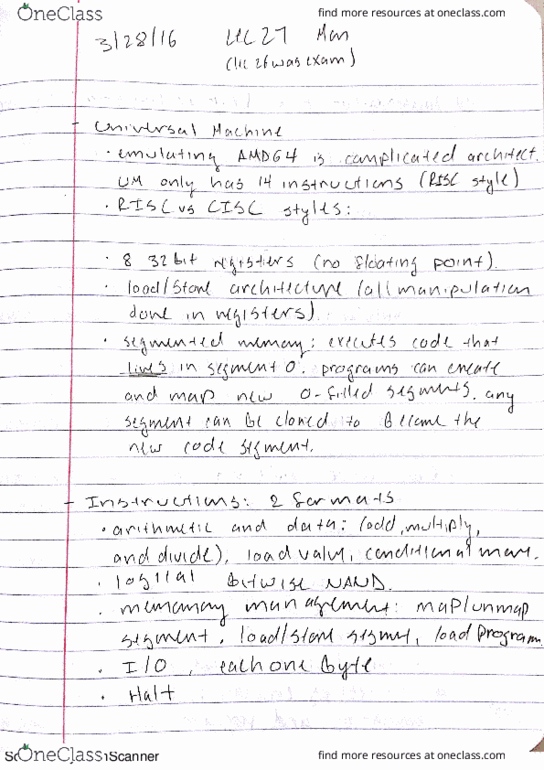 OneClass find more resources at oneclass.com
3/28/16 LEC 27 Mon
(lec 26 was exam)
- Universal Machine
· emulating AMD64 is complicated architect.
UM only has 14 instructions (RISC style)
· RISC vs CISC styles:
· 8 32 bit registers (no floating point).
· load/store architecture (all manipulation
done in registers).
· segmented memory: executes code that
lives in segment 0. programs can create
and map new 0-filled segments. any
segment can be cloned to become the
new code segment.
- Instructions: 2 formats
· arithmetic and data: (add, multiply,
and divide), load value, conditional move.
· logical bitwise NAND.
· memory management: map/unmap
segment, load/store segment, load program
· I/O, each one byte
· Halt
OneClass Scanner find more resources at oneclass.com